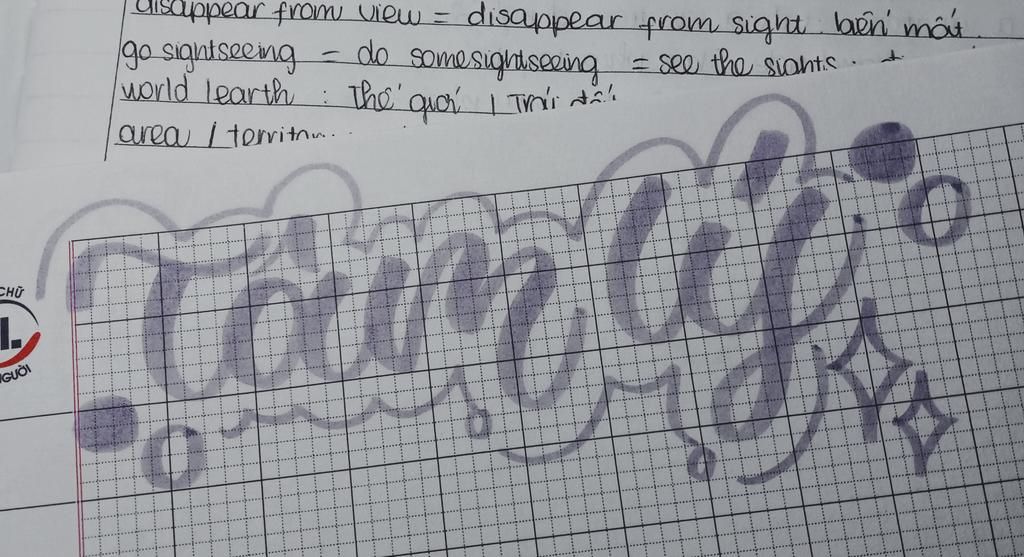 disappear from view = disappear from sight biến mất
go sightseeing = do some sightseeing = see the sights
world / earth : Thế giới / Trái đất
area /
Tâm lý
CHỮ
L.
NGƯỜI